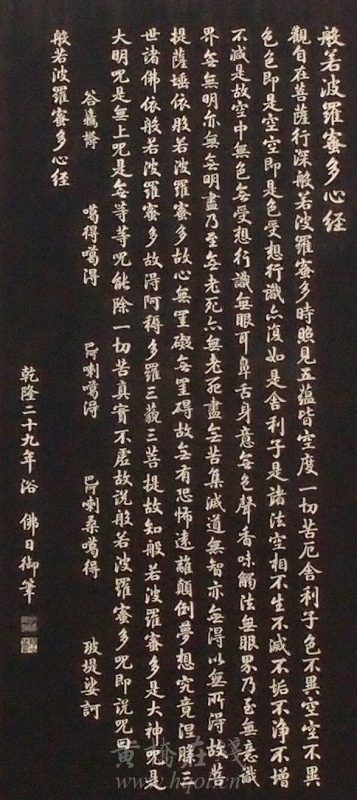 般若波羅蜜多心经
觀自在菩薩行深般若波羅蜜多時照見五蕴皆空度一切苦厄舍利子色不異空空不異
色色即是空空即是色受想行識亦復如是舍利子是諸法空相不生不滅不垢不净不增
不减是故空中無色無受想行識無眼耳鼻舌身意無色聲香味觸法無眼界乃至無意識
界無無明亦無無明盡乃至無老死亦無老死盡無苦集滅道無智亦無得以無所得故菩
提薩埵依般若波羅蜜多故心無罣礙無罣碍故無有恐怖遠離顛倒夢想究竟涅槃三
世諸佛依般若波羅蜜多故得阿耨多羅三藐三菩提故知般若波羅蜜多是大神呪是
大明呪是無上呪是無等等呪能除一切苦真實不虚故說般若波羅蜜多呪即説呪曰
噶得噶得 巴喇噶得 巴喇桑噶得 玻提娑訶
般若波羅蜜多心经
乾隆二十九年浴 佛日御筆
黄梅在线
www.hqot.cn